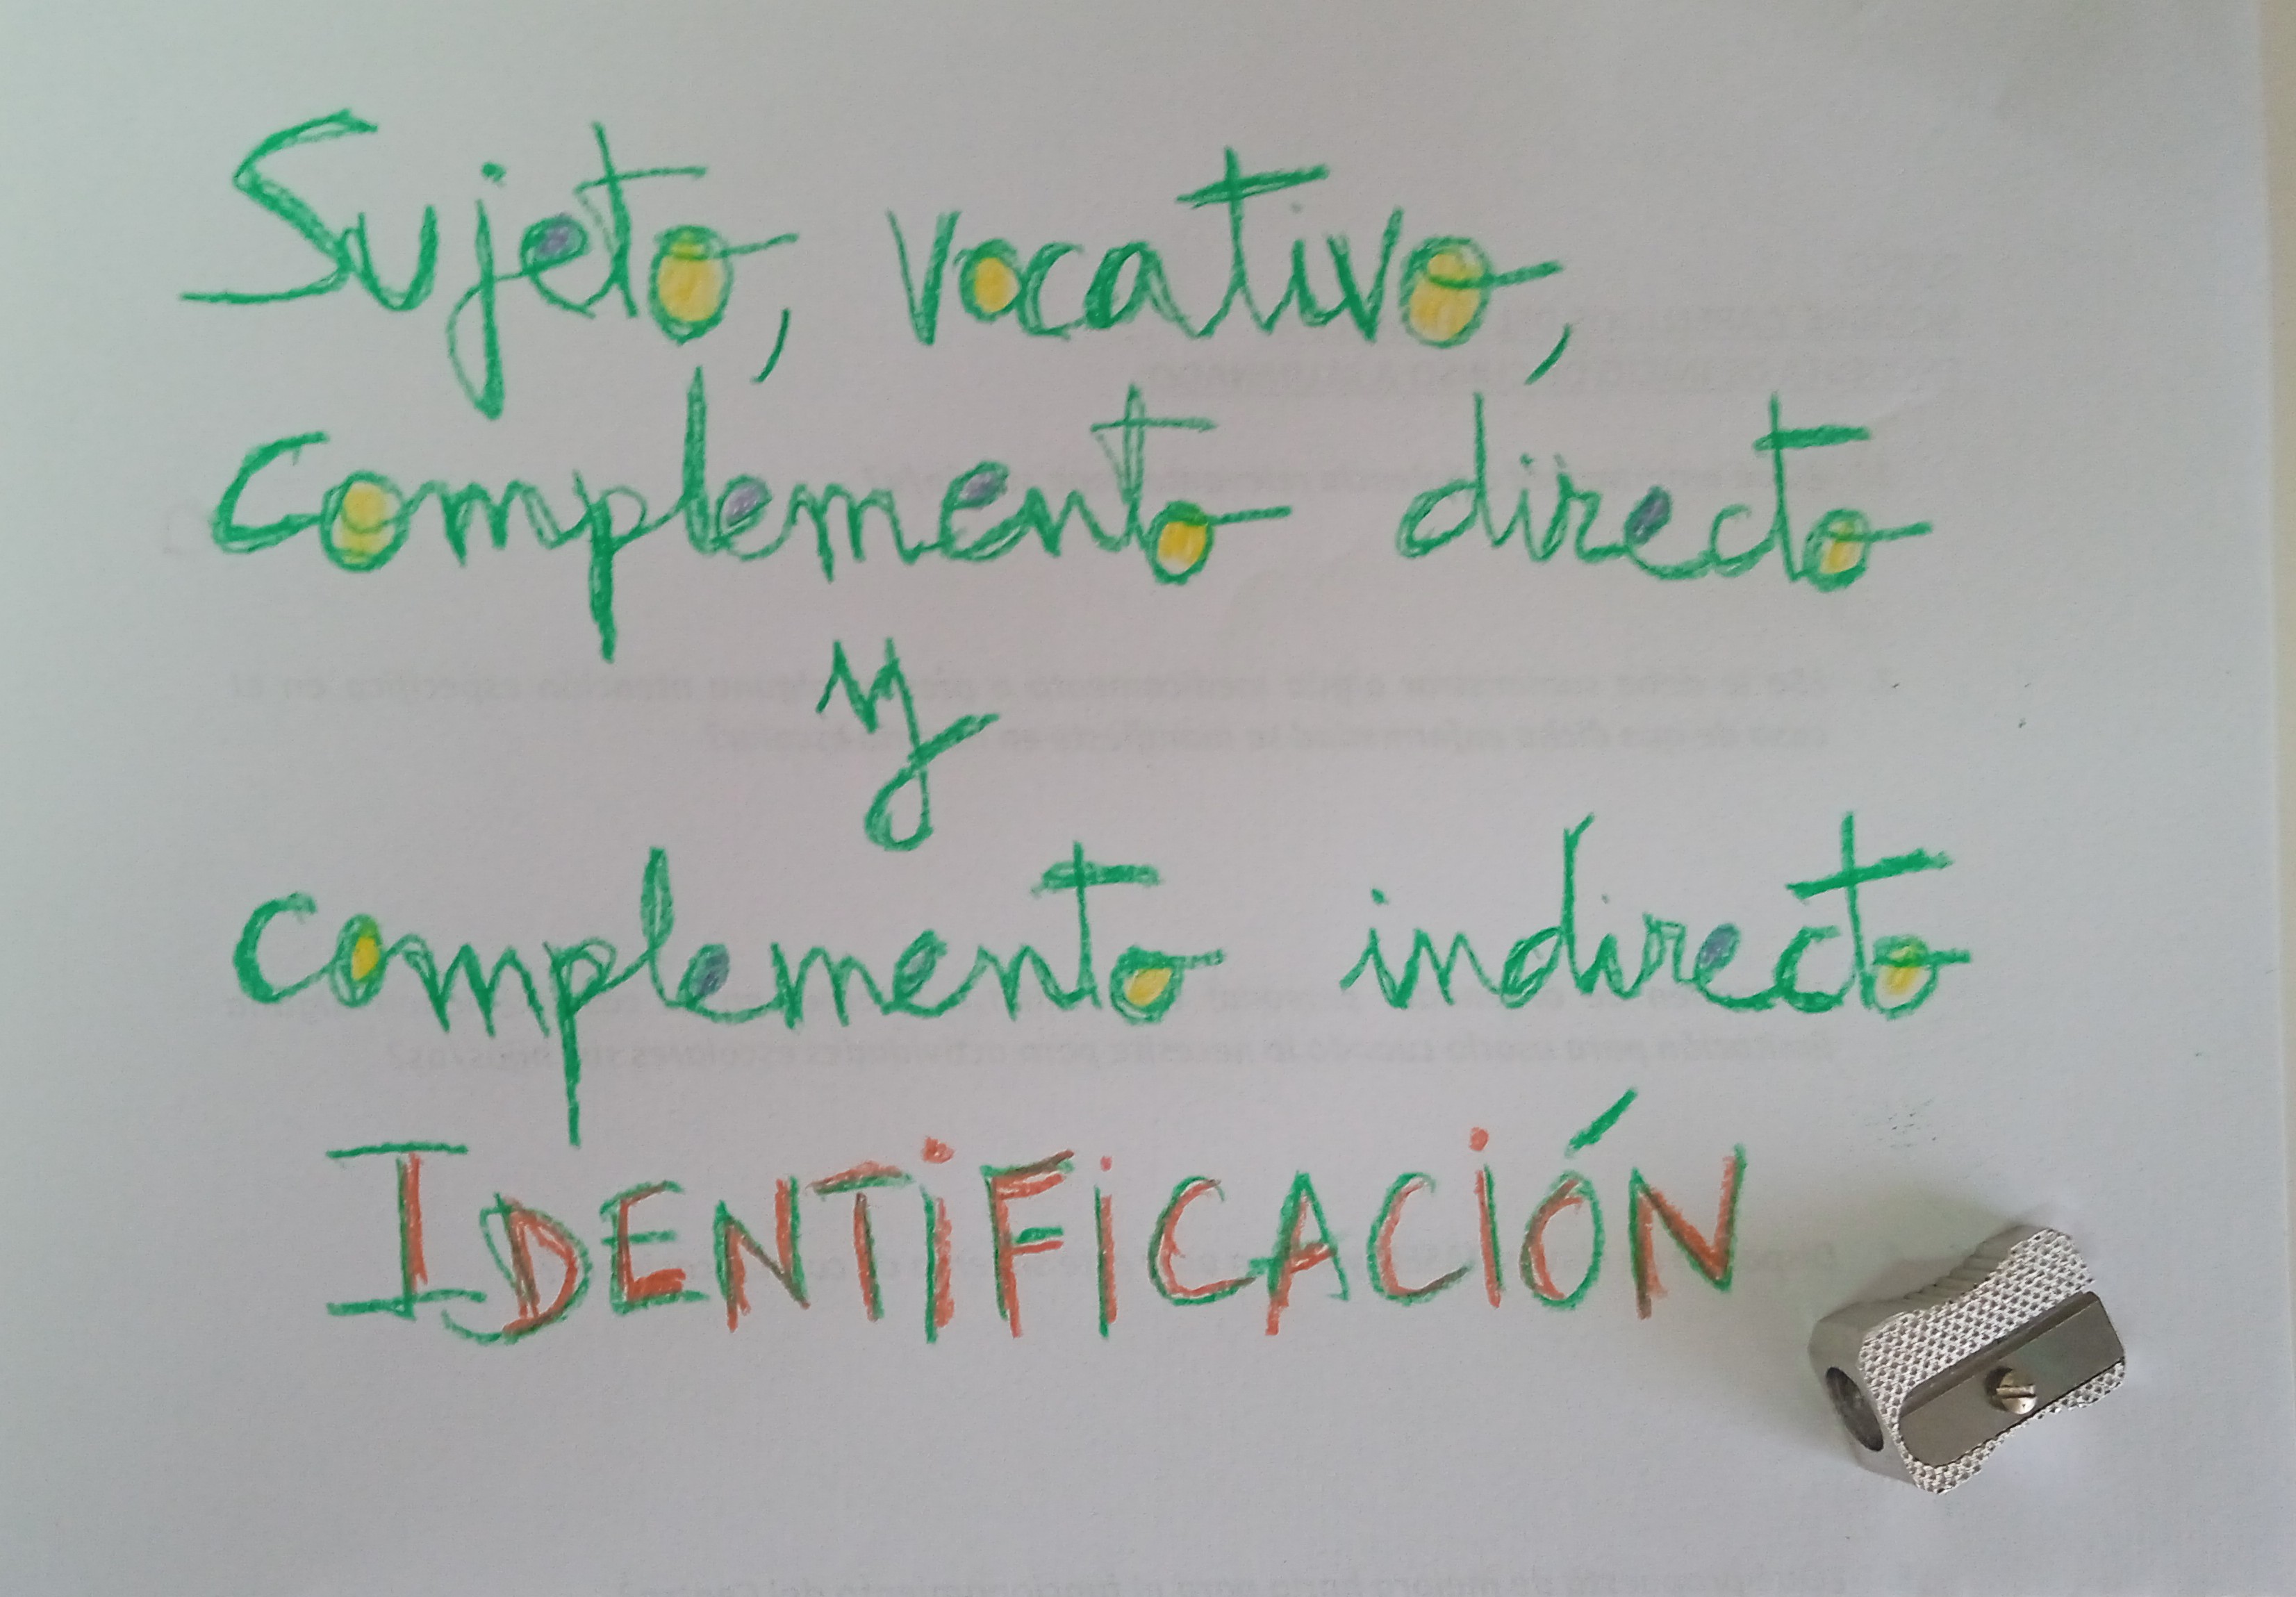 Sujeto, vocativo,
complemento directo
y
complemento indirecto
IDENTiFiCACiÓN